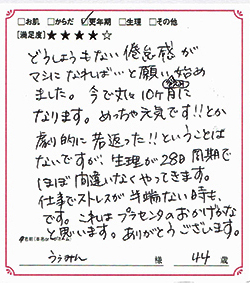 □お肌 □からだ ☑更年期 □生理 □その他
[満足度]★★★★☆
どうしようもない倦怠感が
マシになれば…と願い始め
ました。今で丸10ヶ月に
なります。めっちゃ元気です!!とか
劇的に若返った!!ということは
ないですが、生理が28日周期で
ほぼ間違いなくやってきます。
仕事でストレスが半端ない時も、
です。これはプラセンタのおかげかな
と思います。ありがとうございます。
うぅみん 様 44歳